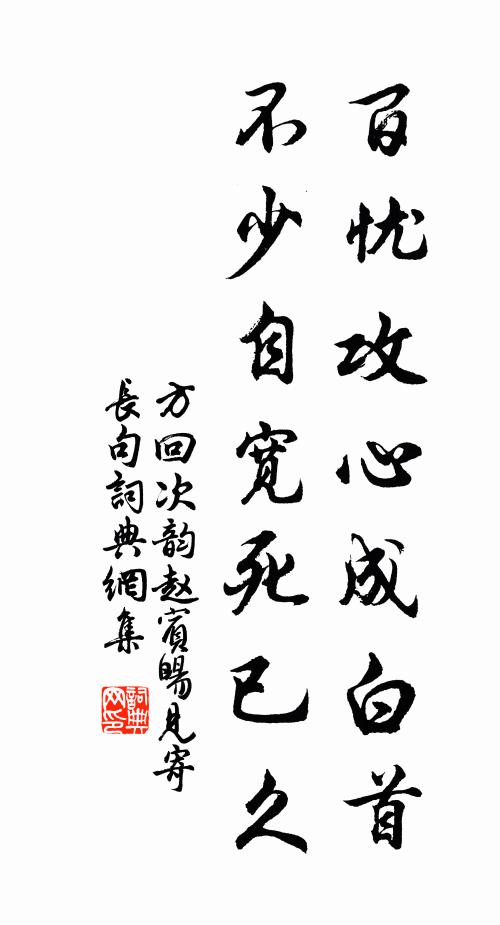 百忧攻心成白首
不少自寬死已久
方回次韵赵賓暘見寄
長句詞典網集
詞典
网印